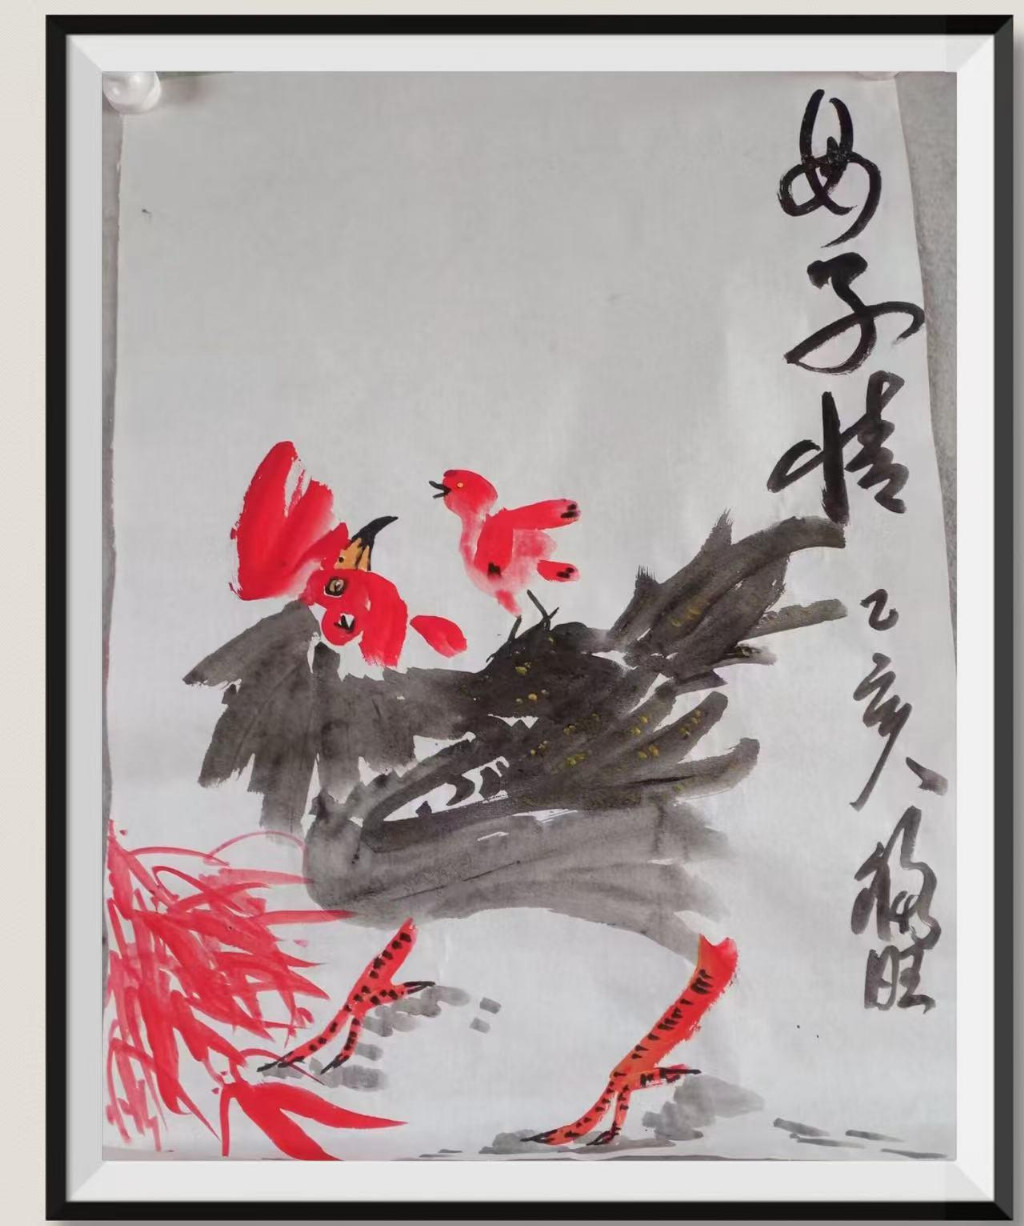 母子情
乙亥旺